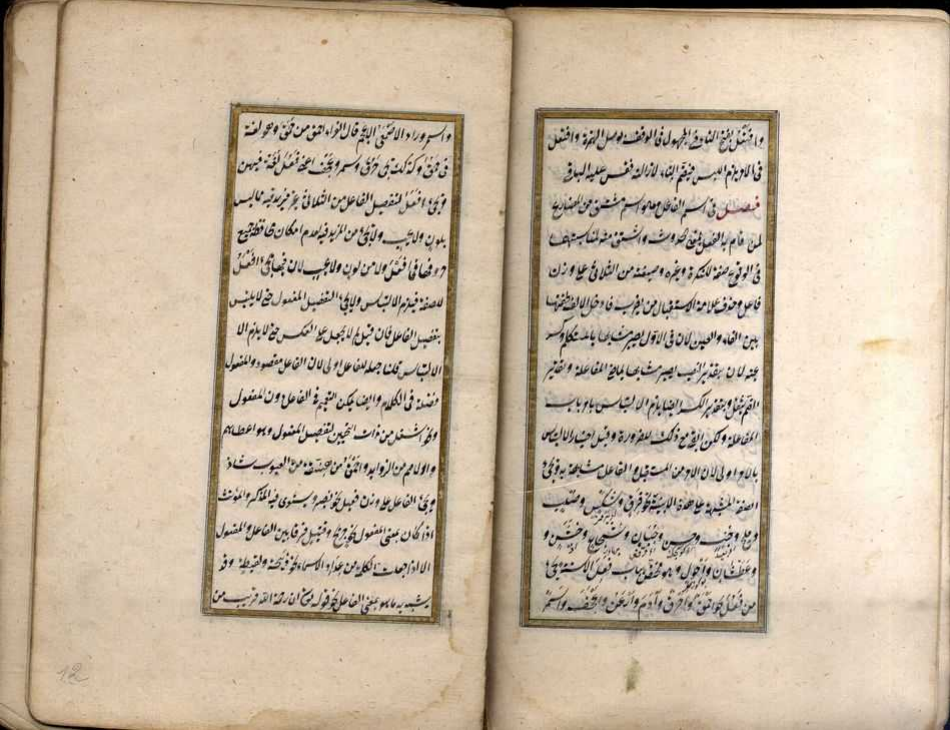 وافتعل بفتح التاء في المجهول في الوقف بوصل الهمزة وافتعل
في الامر يلزم اللبس فيضم التاء لازالته فقس عليه البواقي
فصل في اسم الفاعل وهو اسم مشتق من المضارع
لمن قام به الفعل بمعنى الحدوث واشتق منه لمناسبتهما
في الوقوع صفة للنكرة وغيره وصيغته من الثلاثي على وزن
فاعل وحذف علامة الاستقبال من يضرب فادخل الالف لخفتها
بين الفاء والعين لان في الاول يصير مشابها بالمتكلم وكسر
عينه لان بتقدير النصب يصير مشابها بماضي المفاعلة وبتقدير
الضم يثقل وبتقدير الكسر ايضا يلزم الالتباس بامر باب
المفاعلة ولكن ابقي مع ذلك للضرورة وقيل اختيار الالتباس
بالامر اولى لان الامر من المستقبل والفاعل مشابهة به ويجئ
الصفة المشبهة على هذه الابنية نحو فرق وشكس وصلب
وملح وجنب وحسن وجبان وشجاع وخشن و
وعطشان واحول وهو مختص بباب فعل الا ستة يجئ
من فعل نحو احمق واخرق وآدم وارعن واعجف واسمر
واسمر وزاد الاصمعي الاعجم قال الفراء احمق من حمق وهو لغة
في حمق وكذلك يجئ خرق وسمر وعجف اعني فعل لغة فيهن
ويجئ افعل لتفضيل الفاعل من الثلاثي غير مزيد فيه مما ليس
بلون ولا عيب ولا يجئ من المزيد فيه لعدم امكان محافظة جميع
حروفها في افعل ولا من لون ولا عيب لان فيهما يجئ افعل
للصفة فيلزم الالتباس ولا يجئ لتفضيل المفعول حتى لا يلتبس
بتفضيل الفاعل فان قيل لم لا يجعل على العكس حتى لا يلزم الا
الالتباس قلنا جعله للفاعل اولى لان الفاعل مقصود والمفعول
فضلة في الكلام وايضا يمكن التعميم في الفاعل دون المفعول
ونحو اشغل من ذات النحيين لتفضيل المفعول وهو اعطاهم
واولاهم من الزوايد واحمق من هبنقة من العيوب شاذ
ويجئ الفاعل على وزن فعيل نحو نصير ويستوي فيه المذكر والمؤنث
اذا كان بمعنى المفعول نحو جريح وقتيل فرقا بين الفاعل والمفعول
الا اذا جعلت الكلمة من عداد الاسماء نحو ذبيحة ولقيطة وقد
يشبه به ما هو بمعنى الفاعل نحو قوله تع ان رحمة الله قريب من
12